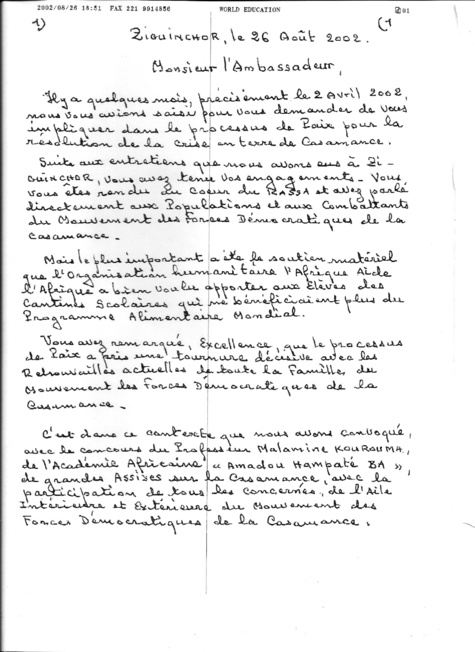 2002/08/26 18:51 FAX 221 9914856 WORLD EDUCATION 01
1) (1
ZIGUINCHOR, le 26 Août 2002.
Monsieur l'Ambassadeur,
Il y a quelques mois, précisément le 2 Avril 2002,
nous vous avions saisi pour vous demander de vous
impliquer dans le processus de Paix pour la
resolution de la crise en terre de Casamance.
Suite aux entretiens que nous avons eus à ZI-
GUINCHOR, vous avez tenu vos engagements. Vous
vous êtes rendu au coeur du et avez parlé
directement aux Populations et aux Combattants
du Mouvement des Forces Démocratiques de la
Casamance.
Mais le plus important a été le soutien matériel
que l'Organisation humanitaire l'Afrique Aide
l'Afrique a bien voulu apporter aux Elèves des
Cantines Scolaires qui ne bénéficiaient plus du
Programme Alimentaire Mondial.
Vous avez remarqué, Excellence, que le processus
de Paix a pris une tournure décisive avec les
Retrouvailles actuelles de toute la Famille du
Mouvement des Forces Démocratiques de la
Casamance.
C'est dans ce contexte que nous avons convoqué,
avec le concours du Professeur Malamine KOUROUMA,
de l'Académie Africaine « Amadou Hampaté BA »,
de grandes Assises sur la Casamance, avec la
participation de tous les concernés, de l'Aile
Intérieure et Extérieure du Mouvement des
Forces Démocratiques de la Casamance.